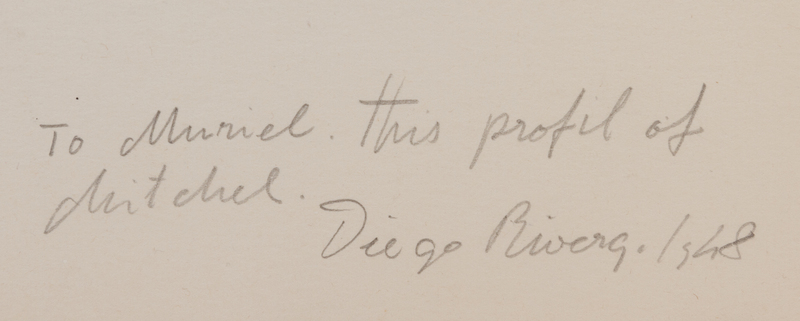 To Muriel. this profil of
Mitchel.
Diego Rivera. 1948